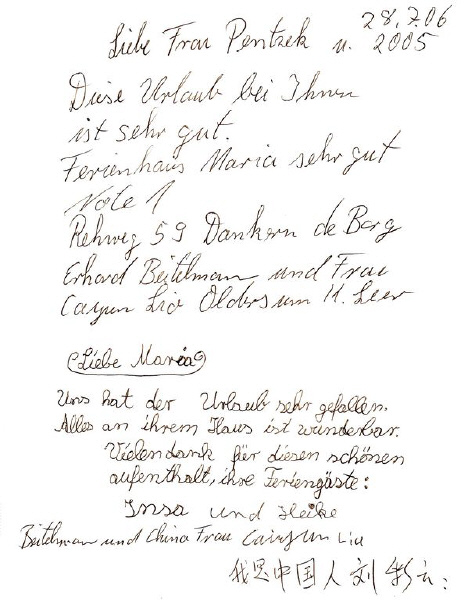 28.7.06
Liebe Frau Pentzek u. 2005
Diese Urlaub bei Ihnen
ist sehr gut.
Ferienhaus Maria sehr gut
Note 1
Rehweg 59 Dankern de Berg
Erhard Beitelmann und Frau
Caiyun Liu Oldersum Kr. Leer
Liebe Maria
Uns hat der Urlaub sehr gefallen.
Alles an ihrem Haus ist wunderbar.
Vielendank für diesen schönen
aufenthalt, ihre Feriengäste:
Insa und Heike
und China Frau Caiyun Liu
我是中国人刘彩云: